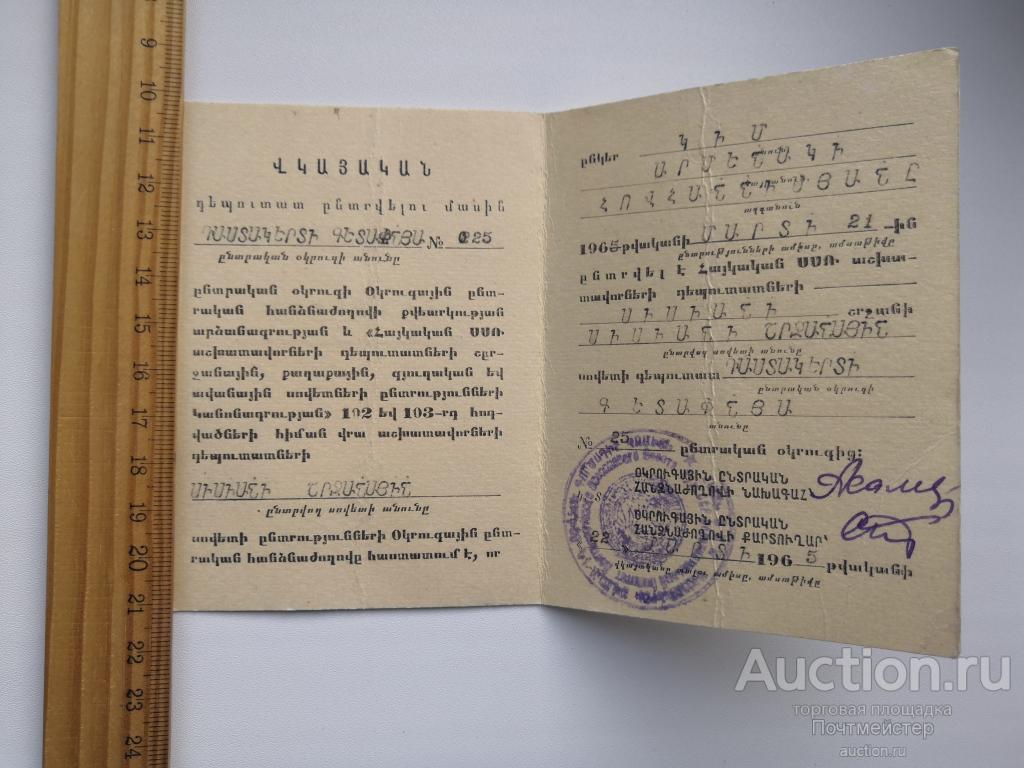 9
10
11
12
13
14
15
16
17
18
19
20
21
22
23
24
ՎԿԱՅԱԿԱՆ
դեպուտատ ընտրվելու մասին
ԴԱՍՏԱԿԵՐՏԻ ԳԵՏԱՓՆՅԱ № 25
ընտրական օկրուգի անունը
ընտրական օկրուգի Օկրուգային ընտ-
րական հանձնաժողովի քվեարկության
արձանագրության և «Հայկական ՍՍՌ
աշխատավորների դեպուտատների շըր-
ջանային, քաղաքային, գյուղական եվ
ավանային սովետների ընտրությունների
Կանոնադրության» 102 եվ 103-րդ հոդ-
վածների հիման վրա աշխատավորների
դեպուտատների
ՍԻՍԻԱՆԻ ՇՐՋԱՆԱՅԻՆ
ընտրվող սովետի անունը
սովետի ընտրությունների Օկրուգային ընտ-
րական հանձնաժողովը հաստատում է, որ
ընկեր ԿԻՄ
անունը
ԱՐՄԵՆԱԿԻ
հայրանունը
ՀՈՎՀԱՆՆԻՍՅԱՆԸ
ազգանուն
1965 թվականի ՄԱՐՏԻ 21-ին
ընտրությունների ամիսը, ամսաթիվը
ընտրվել է Հայկական ՍՍՌ աշխա-
տավորների դեպուտատների
ՍԻՍԻԱՆԻ շրջանի
ՍԻՍԻԱՆԻ ՇՐՋԱՆԱՅԻՆ
ընտրվող սովետի անունը
սովետի դեպուտատ ԴԱՍՏԱԿԵՐՏԻ
ընտրական օկրուգի
ԳԵՏԱՓՆՅԱ
անունը
№ 25 ընտրական օկրուգից:
ՕԿՐՈՒԳԱՅԻՆ ԸՆՏՐԱԿԱՆ
ՀԱՆՁՆԱԺՈՂՈՎԻ ՆԱԽԱԳԱՀ
ՕԿՐՈՒԳԱՅԻՆ ԸՆՏՐԱԿԱՆ
ՀԱՆՁՆԱԺՈՂՈՎԻ ՔԱՐՏՈՒՂԱՐ՝
22 ՄԱՐՏԻ 1965 թվականի
վկայականը տալու ամիսը, ամսաթիվը
Auction.ru
торговая площадка
Почтмейстер
auction.ru